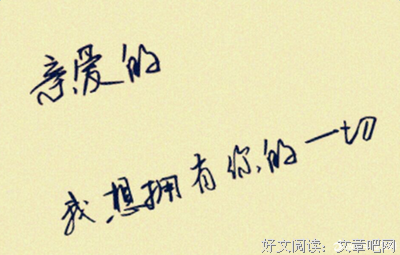 亲爱的
我想拥有你的一切
好文阅读：文章吧网